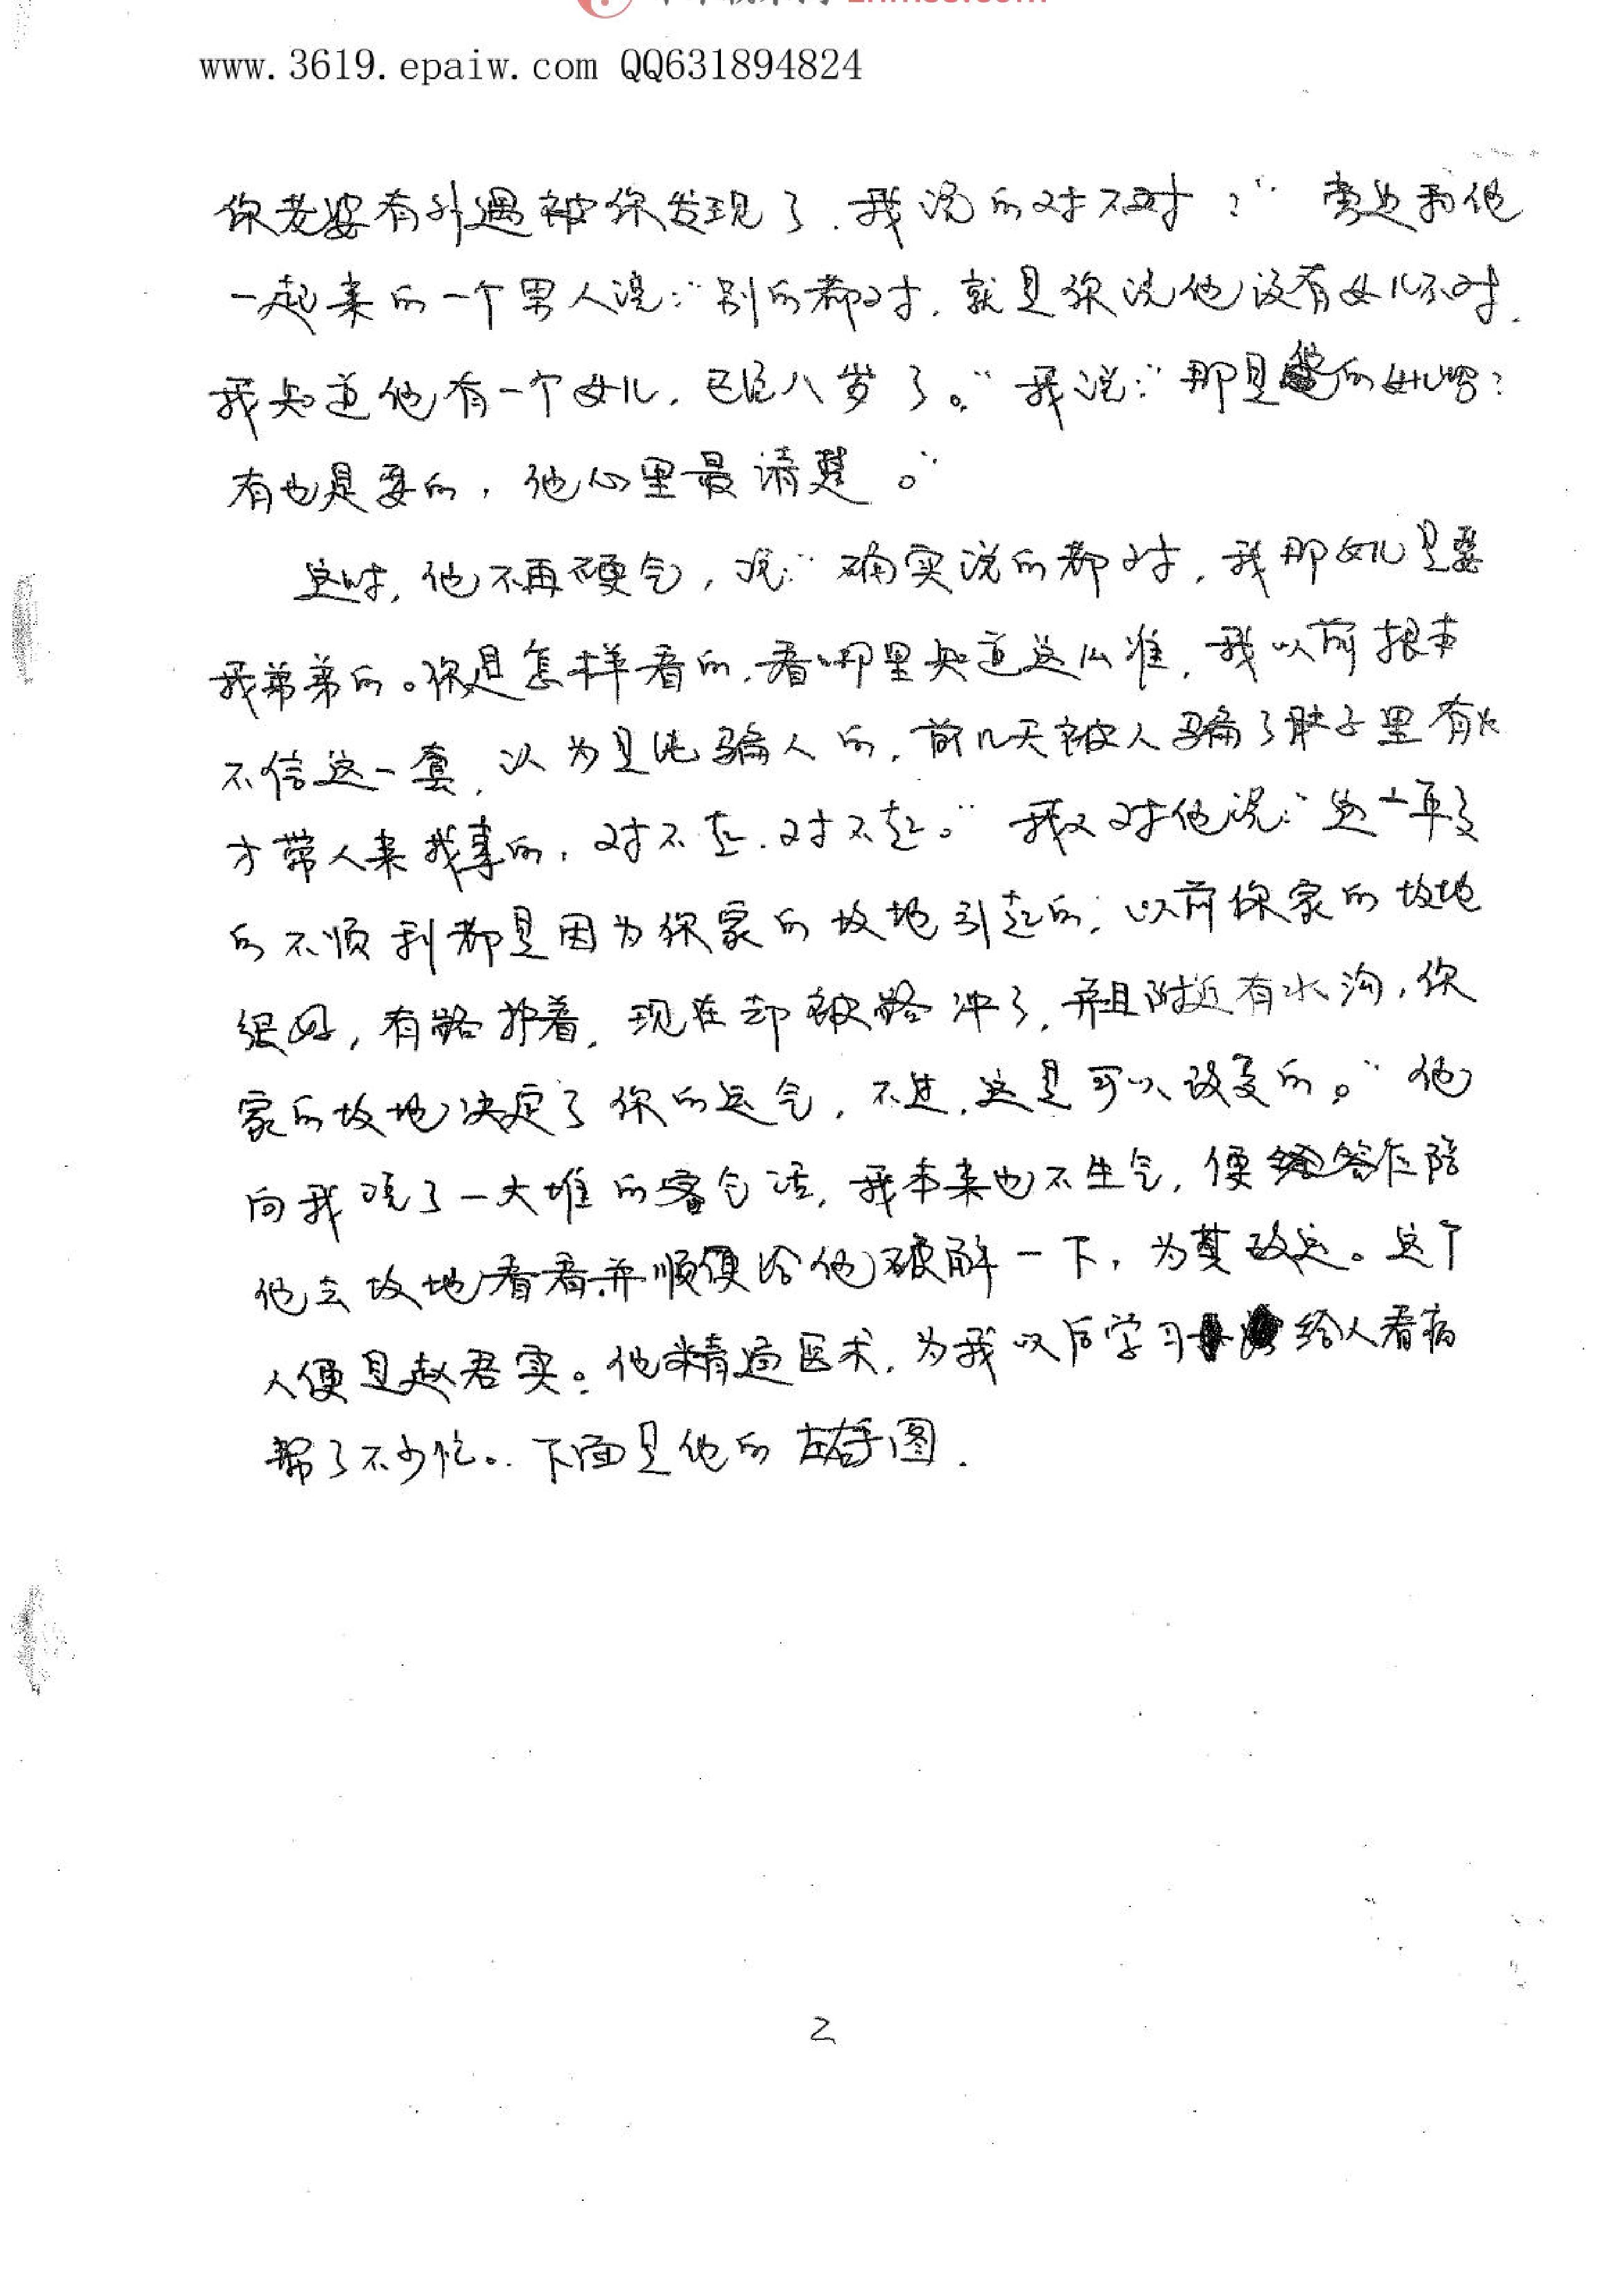 www.3619.epaiw.com QQ631894824
你老婆有外遇被你发现了.我说的对不对?"旁边和他
一起来的一个男人说:"别的都对,就是你说他没有女儿不对.
我知道他有一个女儿,已经八岁了。"我说:"那是他的女儿吗?
有也是要的,他心里最清楚。"
这时,他不再硬气,说:"确实说的都对,我那女儿是要
我弟弟的。你是怎样看的,看哪里知道这么准,我以前根本
不信这一套,以为是骗人的,前几天被人骗了肚子里有火
才带人来找事的,对不起.对不起。"我又对他说:"这一年多
的不顺利都是因为你家的坟地引起的,以前你家的坟地
很好,有路护着,现在却被路冲了,并且附近有水沟,你
家的坟地决定了你的运气,不过,这是可以改变的。"他
向我说了一大堆的客气话,我本来也不生气,便答应陪
他去坟地看看.并顺便给他破解一下,为其改运。这个
人便是赵君实。他精通医术,为我以后学习给人看病
帮了不少忙。下面是他的左右手图.
2